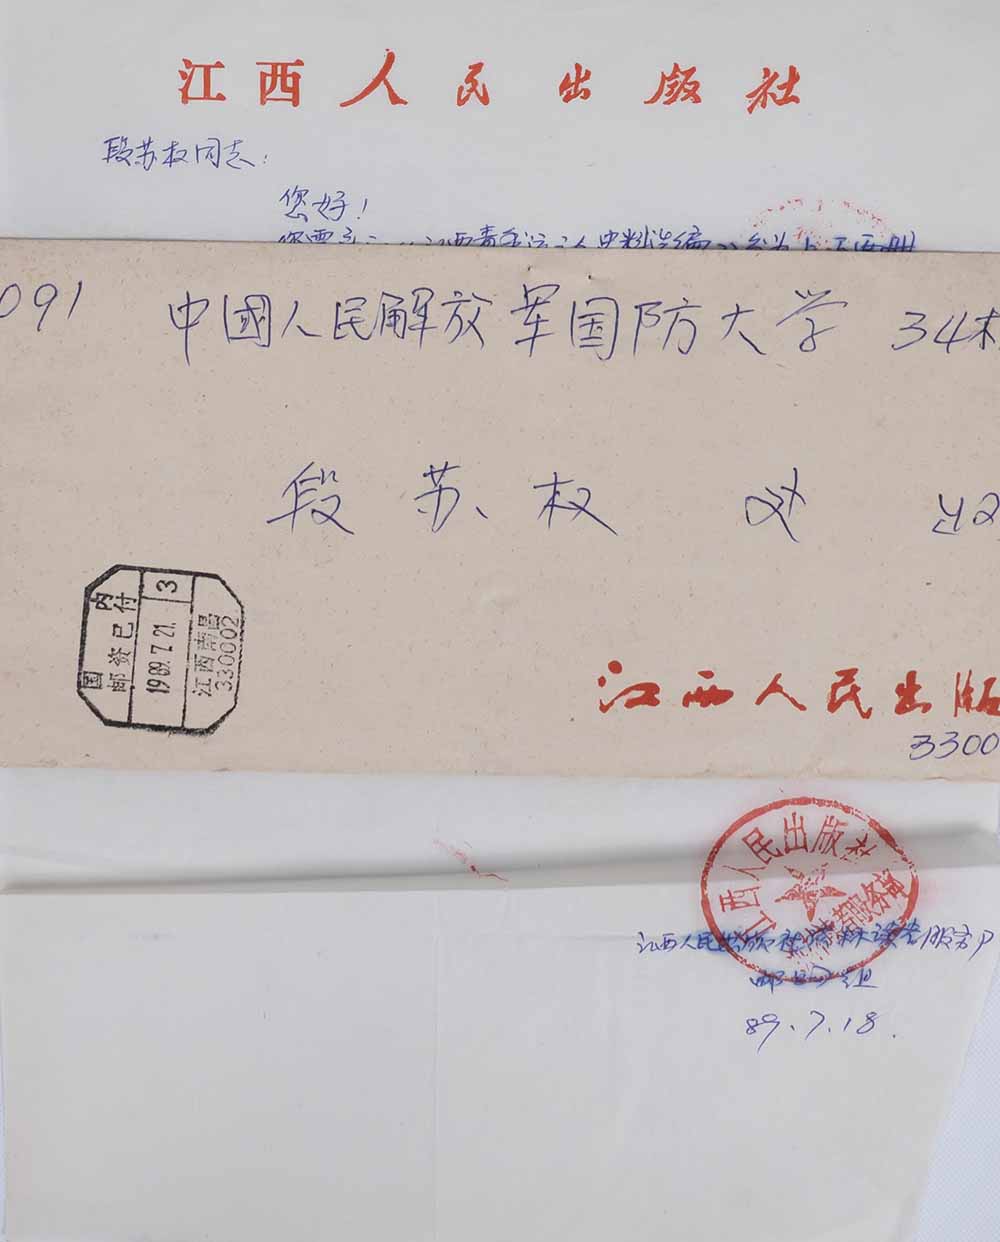 江西人民出版社
段苏权同志：
您好！
091 中國人民解放军国防大学 34
段苏权
国内
邮资已付
1989.7.21. 3
江西南昌
330002
江西人民出版
3300
江西人民出版社
读者服务部
江西人民出版社 读者服务部
邮购组
89.7.18.